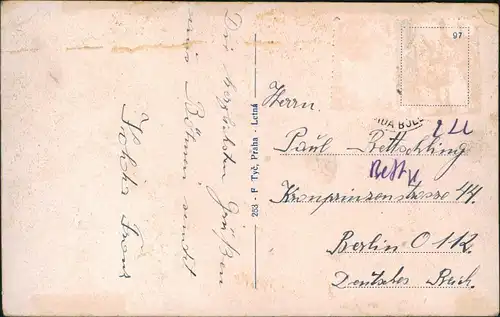 Die herzlichsten Grüßen
aus Böhmen sendet
Franz
253 - F Tyč, Praha - Letná
97
Herrn
Paul Rettschling
Kronprinzenstrasse 44.
Berlin O 112.
Deutsches Reich.